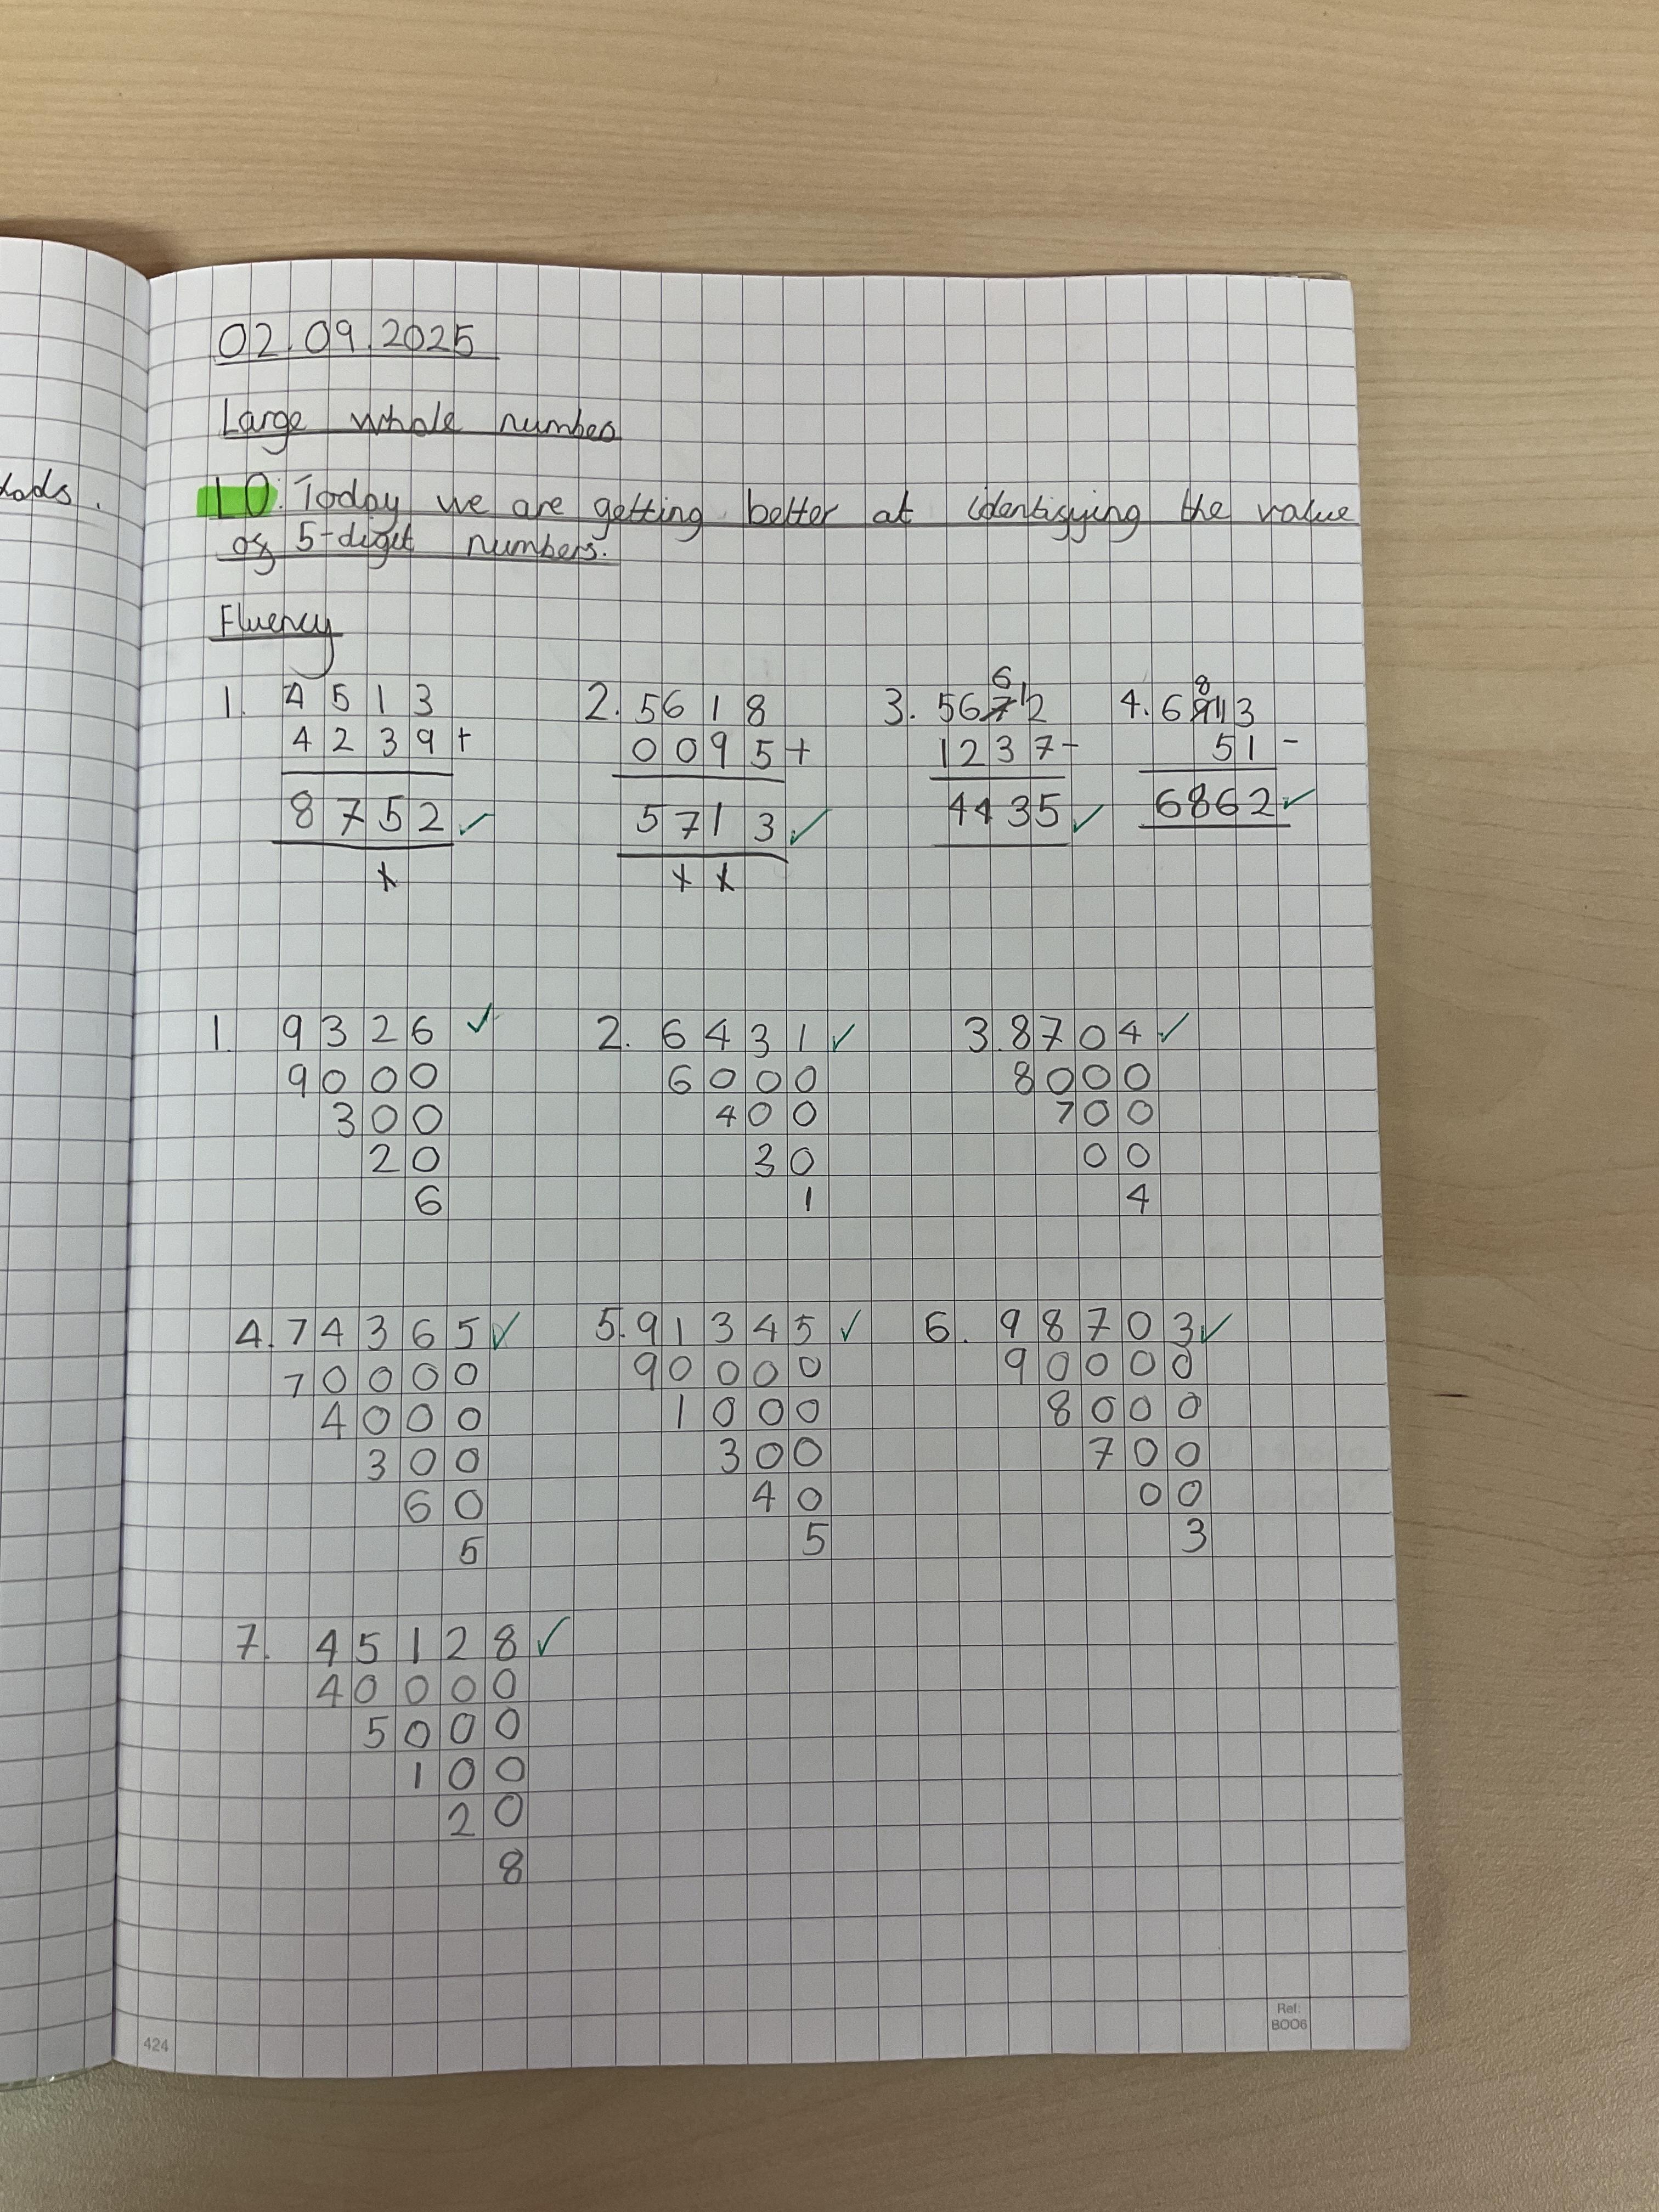 dads.
02.09.2025
Large whole number
LO: Today we are getting better at identifying the value
of 5-digit numbers.
Fluency
1. 4513 2. 5618 3. 56712 4. 6913
6 1 8 1
4239+ 0095+ 1237- 51-
8752 ✓ 5713 ✓ 4435 ✓ 6862 ✓
1 1 1
1. 9326 ✓ 2. 6431 ✓ 3. 8704 ✓
9000 6000 8000
300 400 700
20 30 00
6 1 4
4. 74365 ✓ 5. 91345 ✓ 6. 98703 ✓
70000 90000 90000
4000 1000 8000
300 300 700
60 40 00
5 5 3
7. 45128 ✓
40000
5000
100
20
8
424
Ref:
BOO6